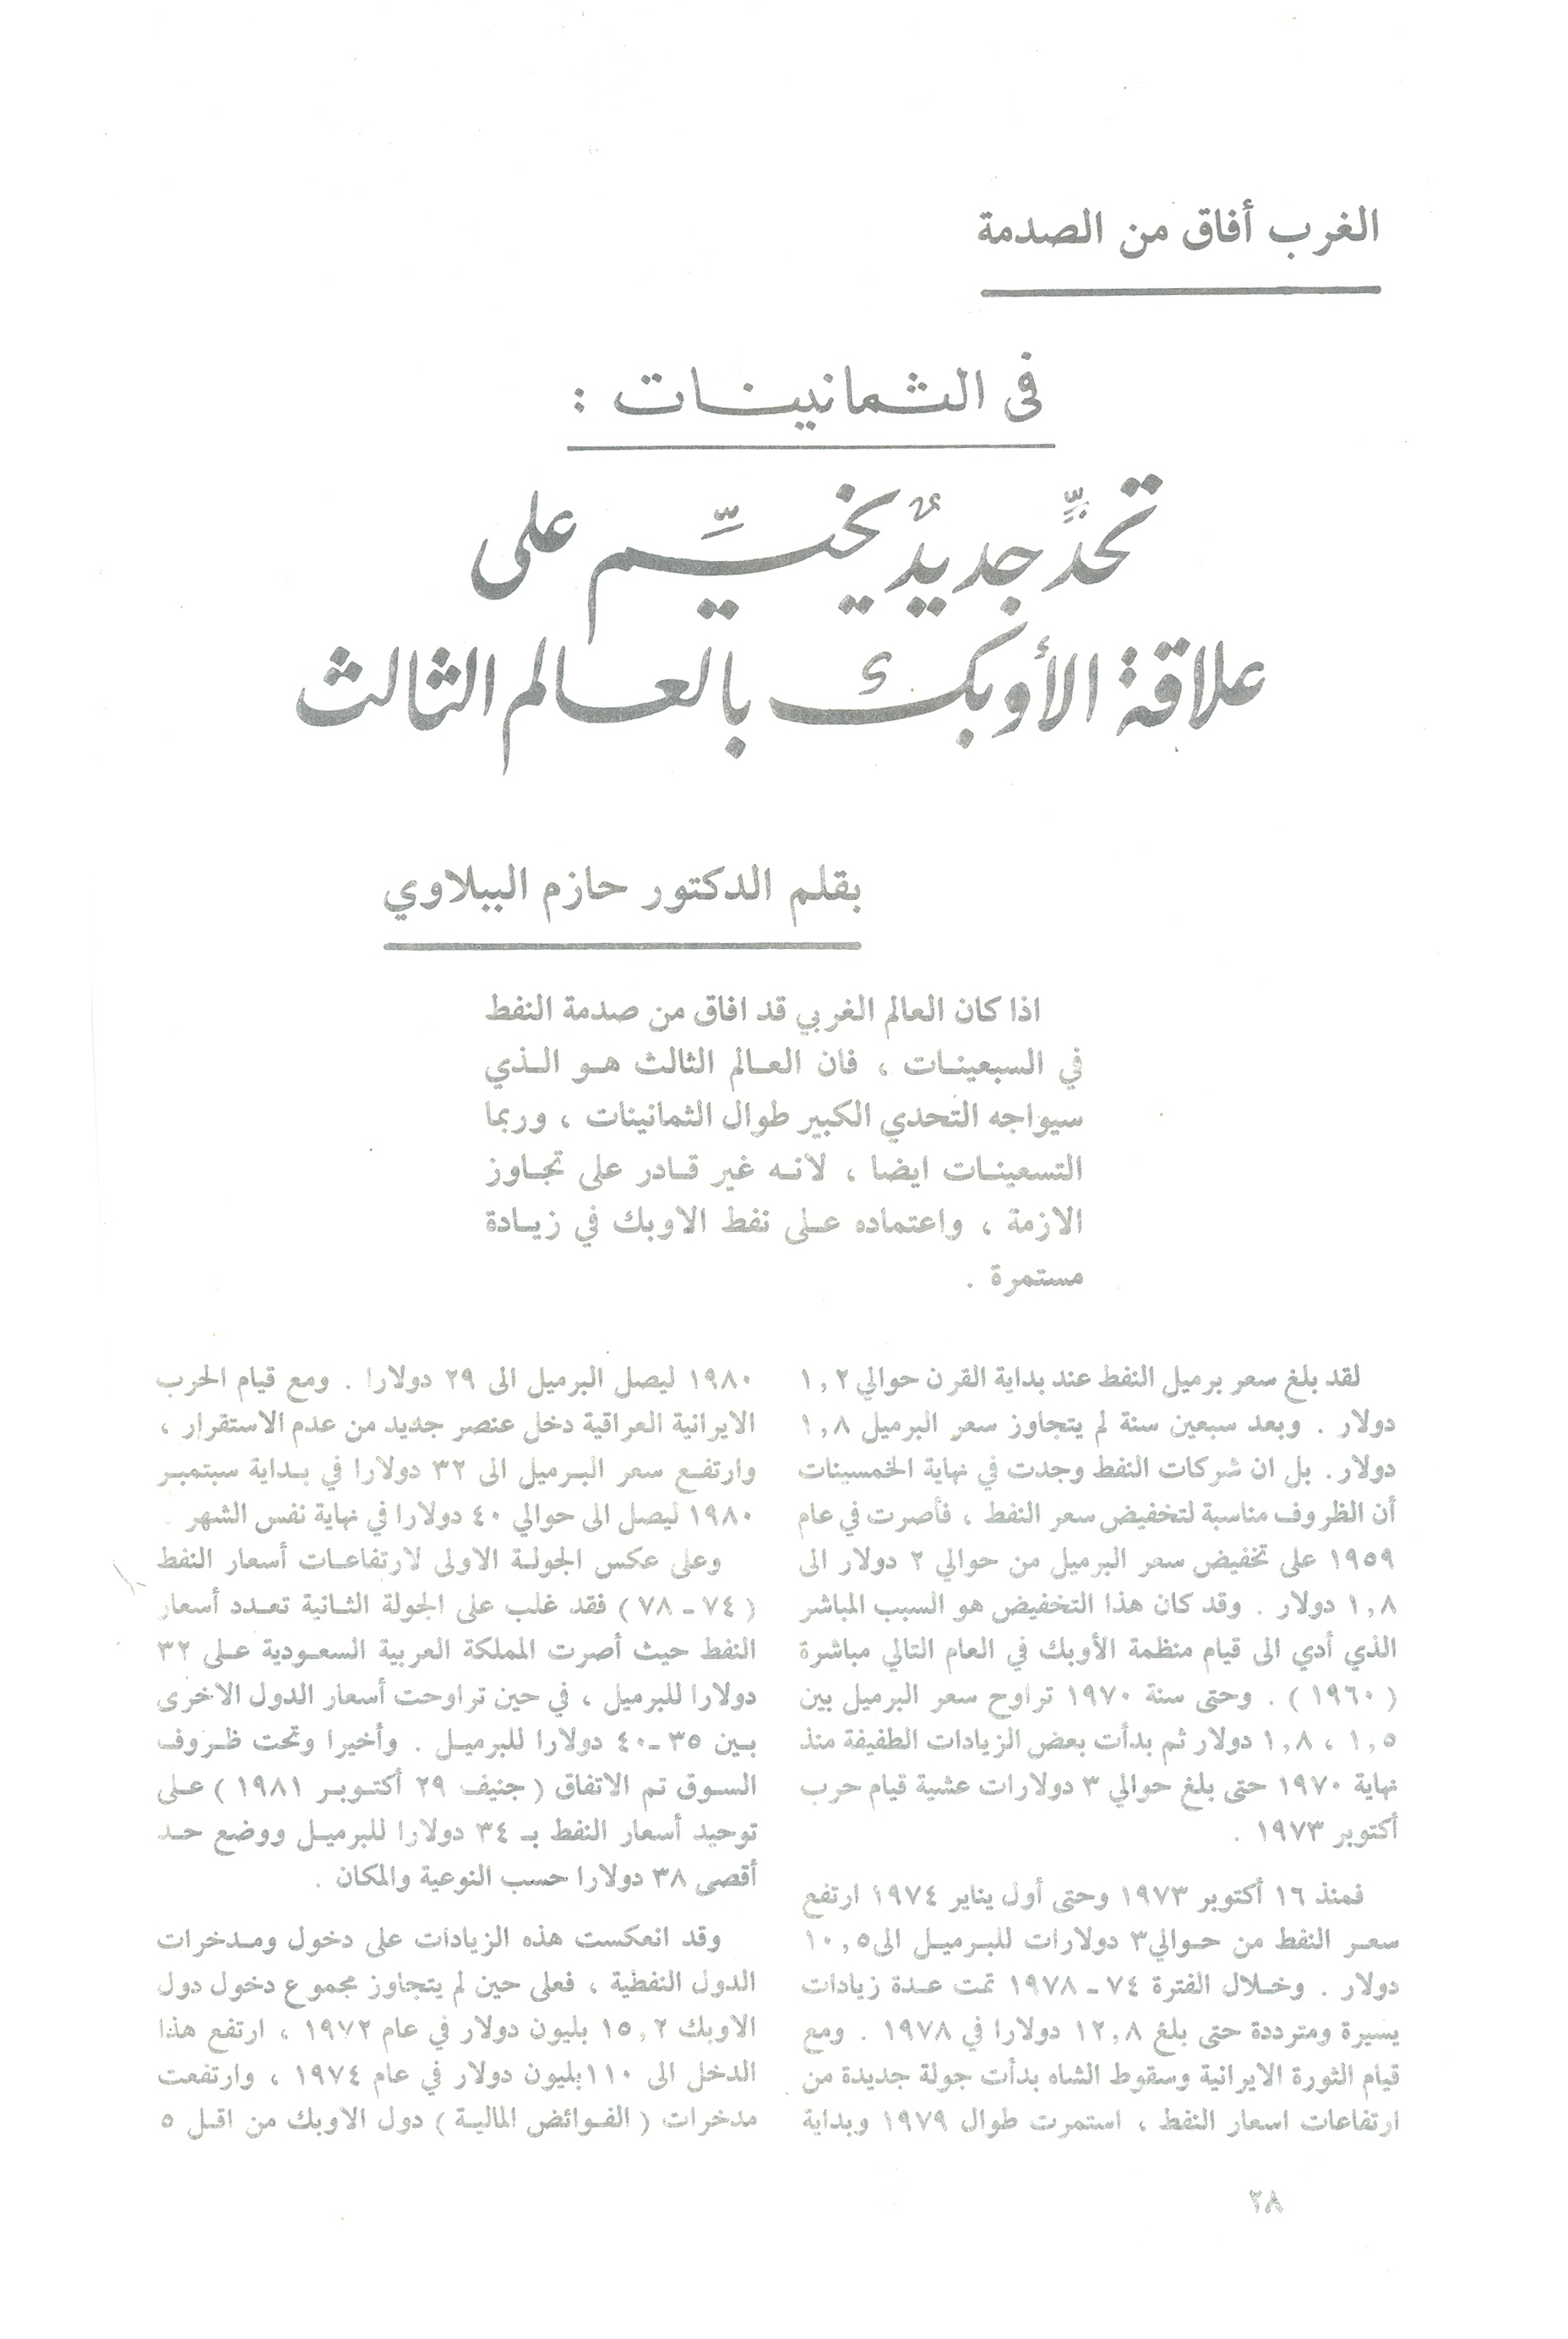 الغرب أفاق من الصدمة
في الثمانينات :
تحدٍّ جديدٌ يخيِّم على
علاقة الأوبك بالعالم الثالث
بقلم الدكتور حازم الببلاوي
اذا كان العالم الغربي قد افاق من صدمة النفط
في السبعينات ، فان العالم الثالث هو الذي
سيواجه التحدي الكبير طوال الثمانينات ، وربما
التسعينات ايضا ، لانه غير قادر على تجاوز
الازمة ، واعتماده على نفط الاوبك في زيادة
مستمرة .
لقد بلغ سعر برميل النفط عند بداية القرن حوالي ١,٢
دولار . وبعد سبعين سنة لم يتجاوز سعر البرميل ١,٨
دولار . بل ان شركات النفط وجدت في نهاية الخمسينات
أن الظروف مناسبة لتخفيض سعر النفط ، فأصرت في عام
١٩٥٩ على تخفيض سعر البرميل من حوالي ٢ دولار الى
١,٨ دولار . وقد كان هذا التخفيض هو السبب المباشر
الذي أدي الى قيام منظمة الأوبك في العام التالي مباشرة
( ١٩٦٠ ) . وحتى سنة ١٩٧٠ تراوح سعر البرميل بين
١,٥ ، ١,٨ دولار ثم بدأت بعض الزيادات الطفيفة منذ
نهاية ١٩٧٠ حتى بلغ حوالي ٣ دولارات عشية قيام حرب
أكتوبر ١٩٧٣ .
فمنذ ١٦ أكتوبر ١٩٧٣ وحتى أول يناير ١٩٧٤ ارتفع
سعر النفط من حوالي ٣ دولارات للبرميل الى ١٠,٥
دولار . وخلال الفترة ٧٤ ـ ١٩٧٨ تمت عدة زيادات
يسيرة ومترددة حتى بلغ ١٢,٨ دولارا في ١٩٧٨ . ومع
قيام الثورة الايرانية وسقوط الشاه بدأت جولة جديدة من
ارتفاعات اسعار النفط ، استمرت طوال ١٩٧٩ وبداية
١٩٨٠ ليصل البرميل الى ٢٩ دولارا . ومع قيام الحرب
الايرانية العراقية دخل عنصر جديد من عدم الاستقرار ،
وارتفع سعر البرميل الى ٣٢ دولارا في بداية سبتمبر
١٩٨٠ ليصل الى حوالي ٤٠ دولارا في نهاية نفس الشهر .
وعلى عكس الجولة الاولى لارتفاعات أسعار النفط
( ٧٤ ـ ٧٨ ) فقد غلب على الجولة الثانية تعدد أسعار
النفط حيث أصرت المملكة العربية السعودية على ٣٢
دولارا للبرميل ، في حين تراوحت أسعار الدول الاخرى
بين ٣٥ ـ ٤٠ دولارا للبرميل . وأخيرا وتحت ظروف
السوق تم الاتفاق ( جنيف ٢٩ أكتوبر ١٩٨١ ) على
توحيد أسعار النفط بـ ٣٤ دولارا للبرميل ووضع حد
أقصى ٣٨ دولارا حسب النوعية والمكان .
وقد انعكست هذه الزيادات على دخول ومدخرات
الدول النفطية ، فعلى حين لم يتجاوز مجموع دخول دول
الاوبك ١٥,٢ بليون دولار في عام ١٩٧٢ ، ارتفع هذا
الدخل الى ١١٠ بليون دولار في عام ١٩٧٤ ، وارتفعت
مدخرات ( الفوائض المالية ) دول الاوبك من اقل ٥
٢٨